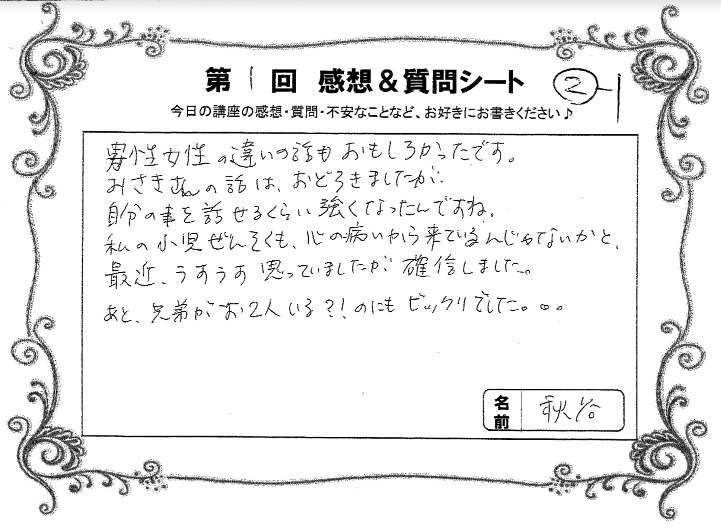 第1回 感想&質問シート ②-1
今日の講座の感想・質問・不安なことなど、お好きにお書きください♪
男性女性の違いの話もおもしろかったです。
みさきさんの話は、おどろきましたが、
自分の事を話せるくらい強くなったんですね。
私の小児ぜんそくも、心の病いから来ているんじゃないかと、
最近、うすうす思っていましたが確信しました。
あと、兄弟がお2人いる?!のにもビックリでした。。。
名前 秋谷